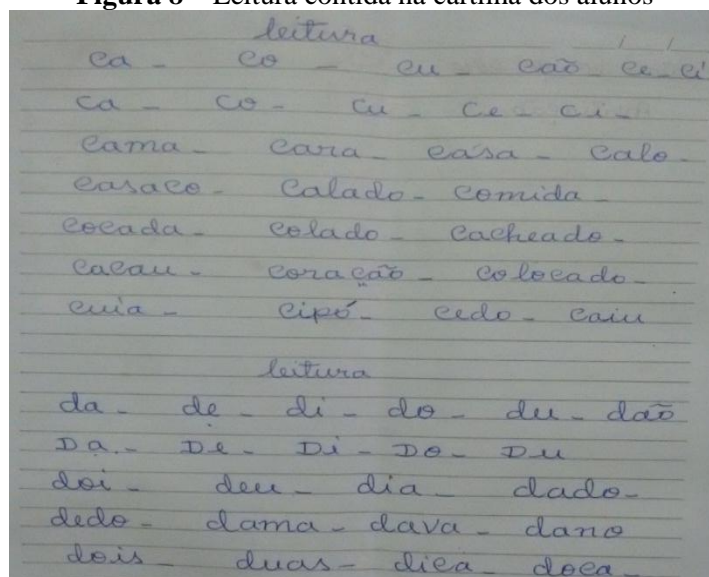 Figura 8 – Leitura contida na cartilha dos alunos
leitura / /
ca - co - cu - cão ce - ci
ca - co - cu - ce - ci -
cama - cara - casa - calo -
casaco - calado - comida -
cocada - colado - cacheado -
cacau - coração - colocado -
cuia - cipó - cedo - caiu
leitura
da - de - di - do - du - dão
Da - De - Di - Do - Du
doi - deu - dia - dado -
dedo - dama - dava - dano
dois - duas - dica - doca -